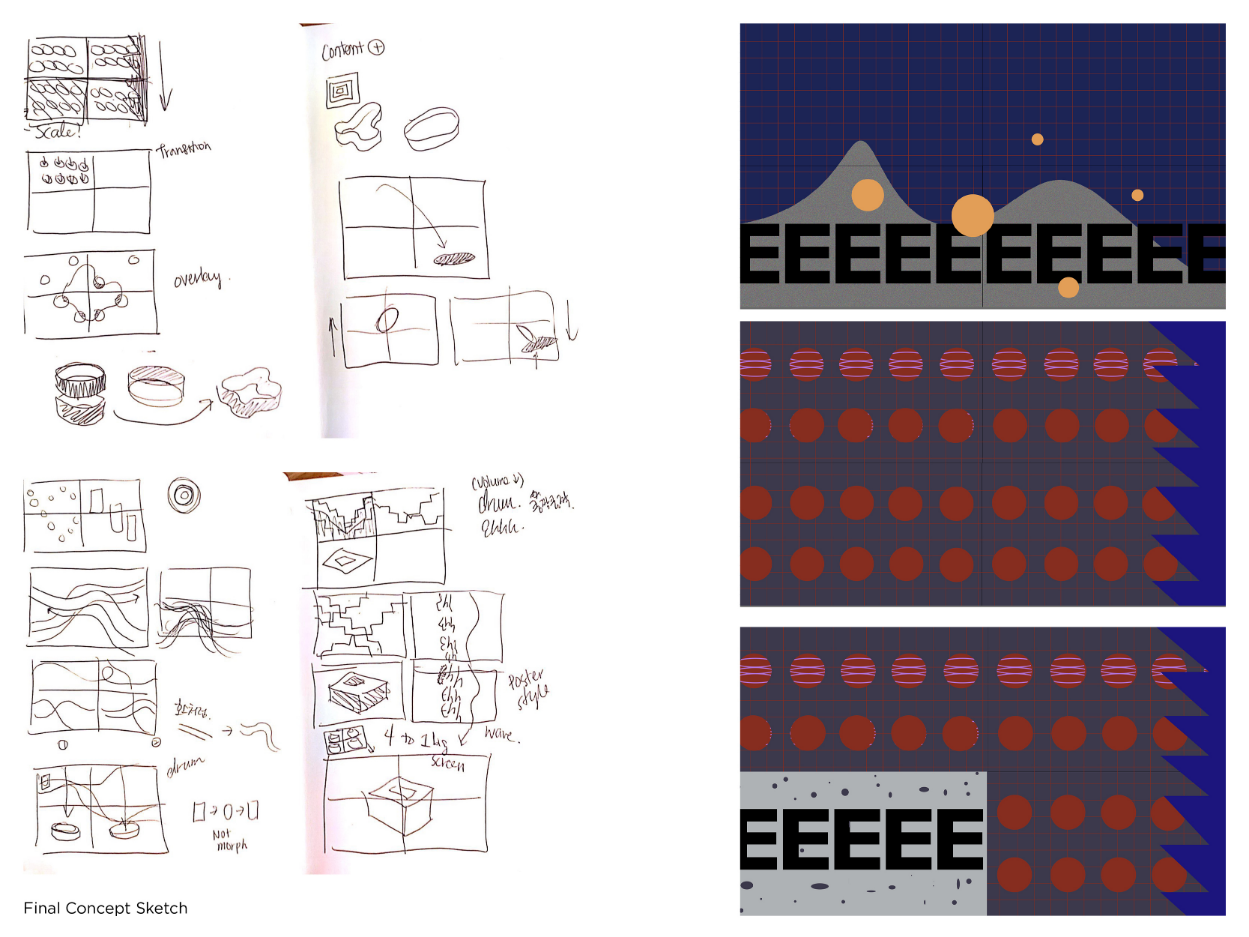 Scale!
Transition
overlay.
Content +
drum
Not
morph
(Volume ↓)
drum.
poster
style
wave.
4 to 1 big
screen
EEEEEEEEEE
EEEEE
Final Concept Sketch